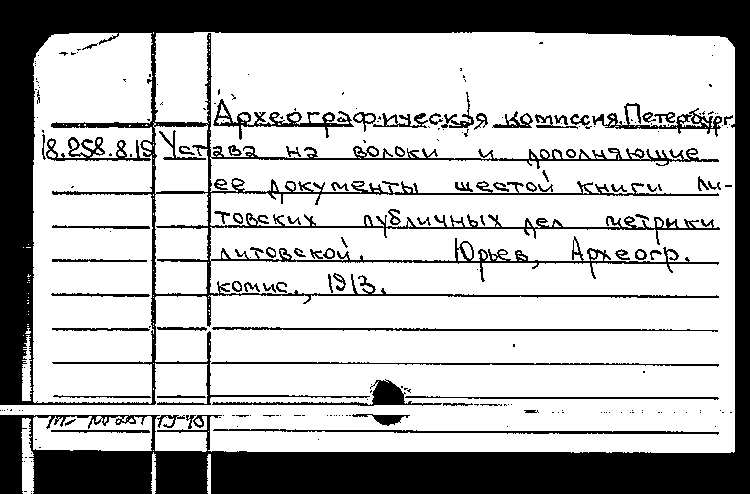 Археографическая комиссия. Петербург.
18.258.8.19 Устава на волоки и дополняющие
ее документы шестой книги ли-
товских публичных дел метрики
литовской. Юрьев, Археогр.
комис., 1913.